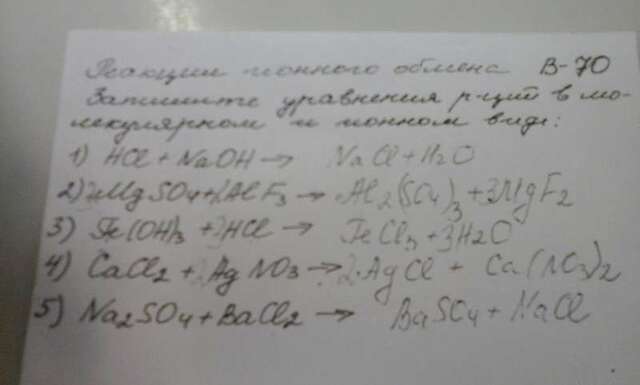 Реакции ионного обмена В-70
Запишите уравнения р-ций в мо-
лекулярном и ионном виде:
1) HCl + NaOH → NaCl + H2O
2) 3MgSO4 + 2AlF3 → Al2(SO4)3 + 3MgF2
3) Fe(OH)3 + 3HCl → FeCl3 + 3H2O
4) CaCl2 + 2AgNO3 → 2AgCl + Ca(NO3)2
5) Na2SO4 + BaCl2 → BaSO4 + NaCl